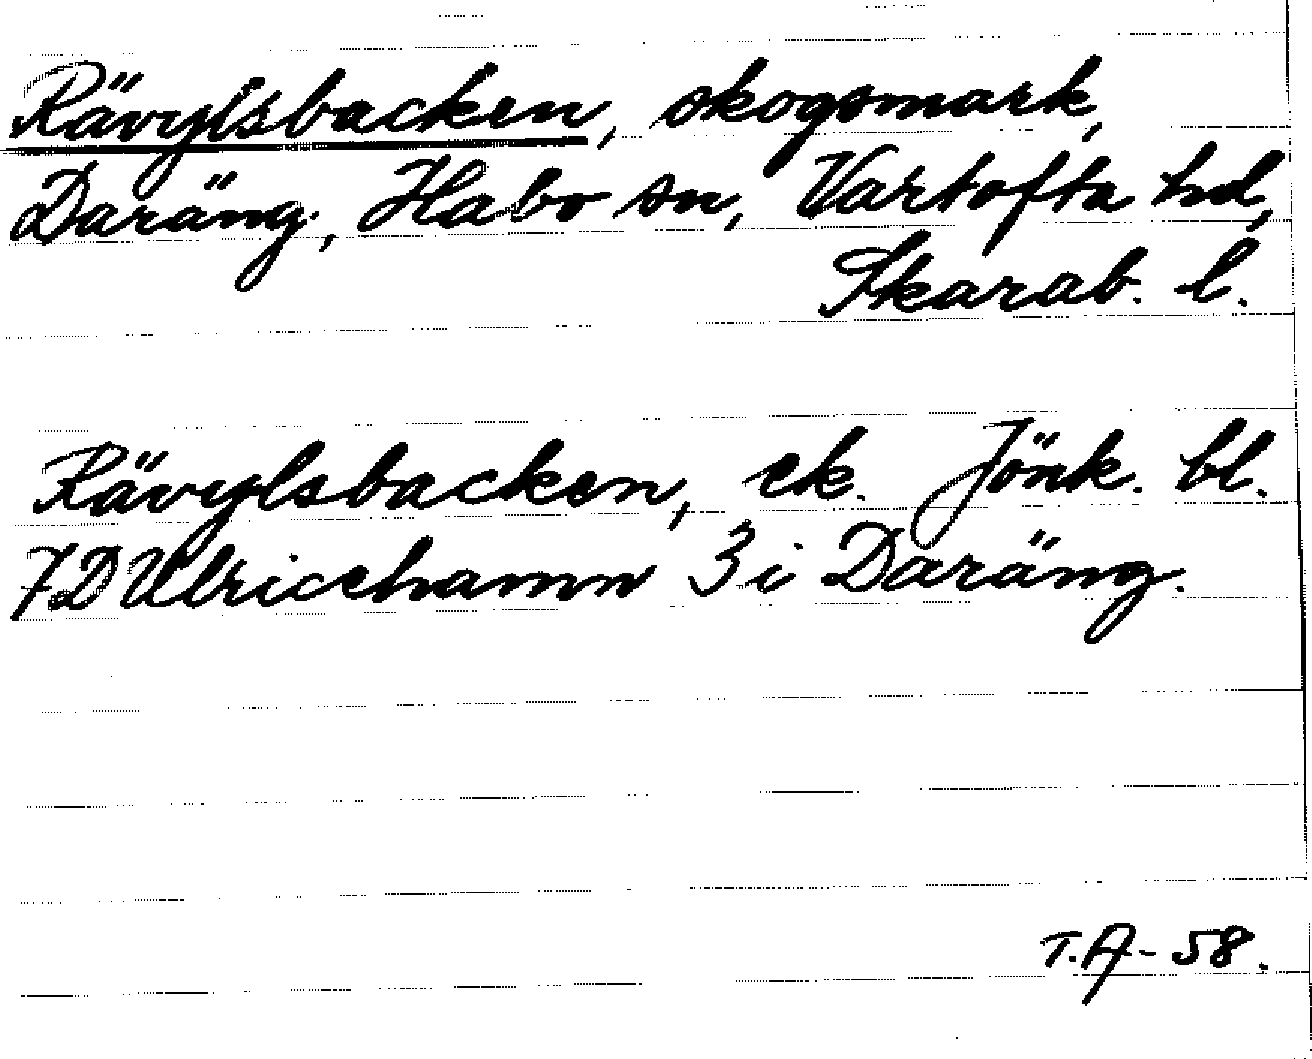 Rävylsbacken, skogsmark,
Daräng, Habo sn, Vartofta hd,
Skarab. l.
Rävylsbacken, ek. Jönk. bl.
7D Ulricehamn 3 i Daräng.
T.A-58.